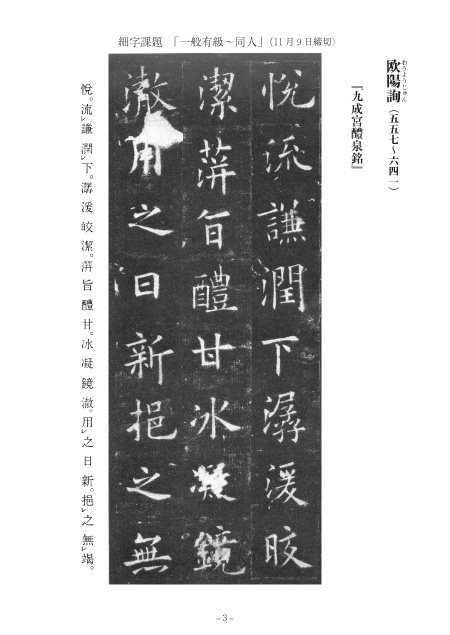 細字課題 「一般有級~同人」(11月9日締切)
欧陽詢(五五七~六四一)
おうようじゅん
『九成宮醴泉銘』
悦流謙潤下潺湲皎
潔蓱旨醴甘冰凝鏡
澈用之日新挹之無
悅。流レ謙潤レ下。潺湲皎潔。蓱旨醴甘。冰凝鏡澈。用レ之日新。挹レ之無レ竭。
-3-